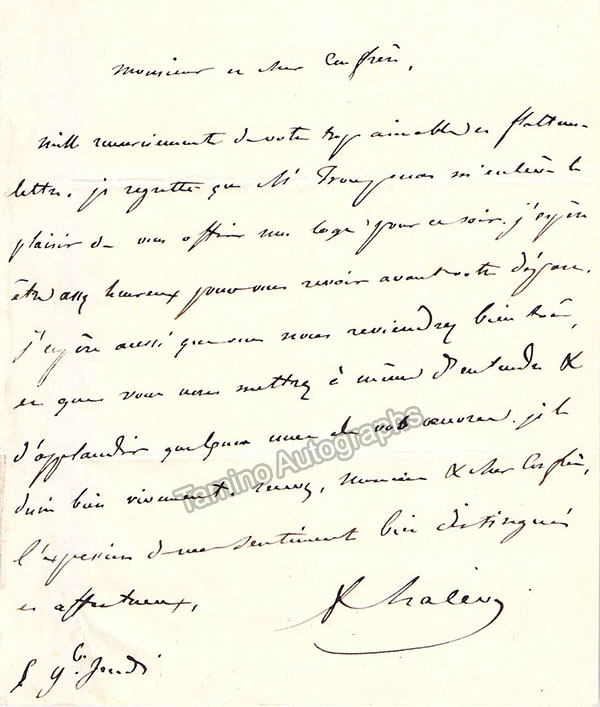 Monsieur et cher Confrère,
mille remerciements de votre trop aimable et flatteuse
lettre. je regrette que Mr m'enlève le
plaisir de vous offrir ma loge pour ce soir. j'espère
être assez heureux pour vous revoir avant votre départ.
j'espère aussi que vous nous reviendrez bientôt,
et que vous nous mettrez à même d'entendre &
d'applaudir quelques unes de vos œuvres. je le
désire bien vivement. recevez, Monsieur & cher Confrère,
l'expression de mes sentiments bien distingués
et affectueux,
F Halévy
Jeudi
Tamino Autographs